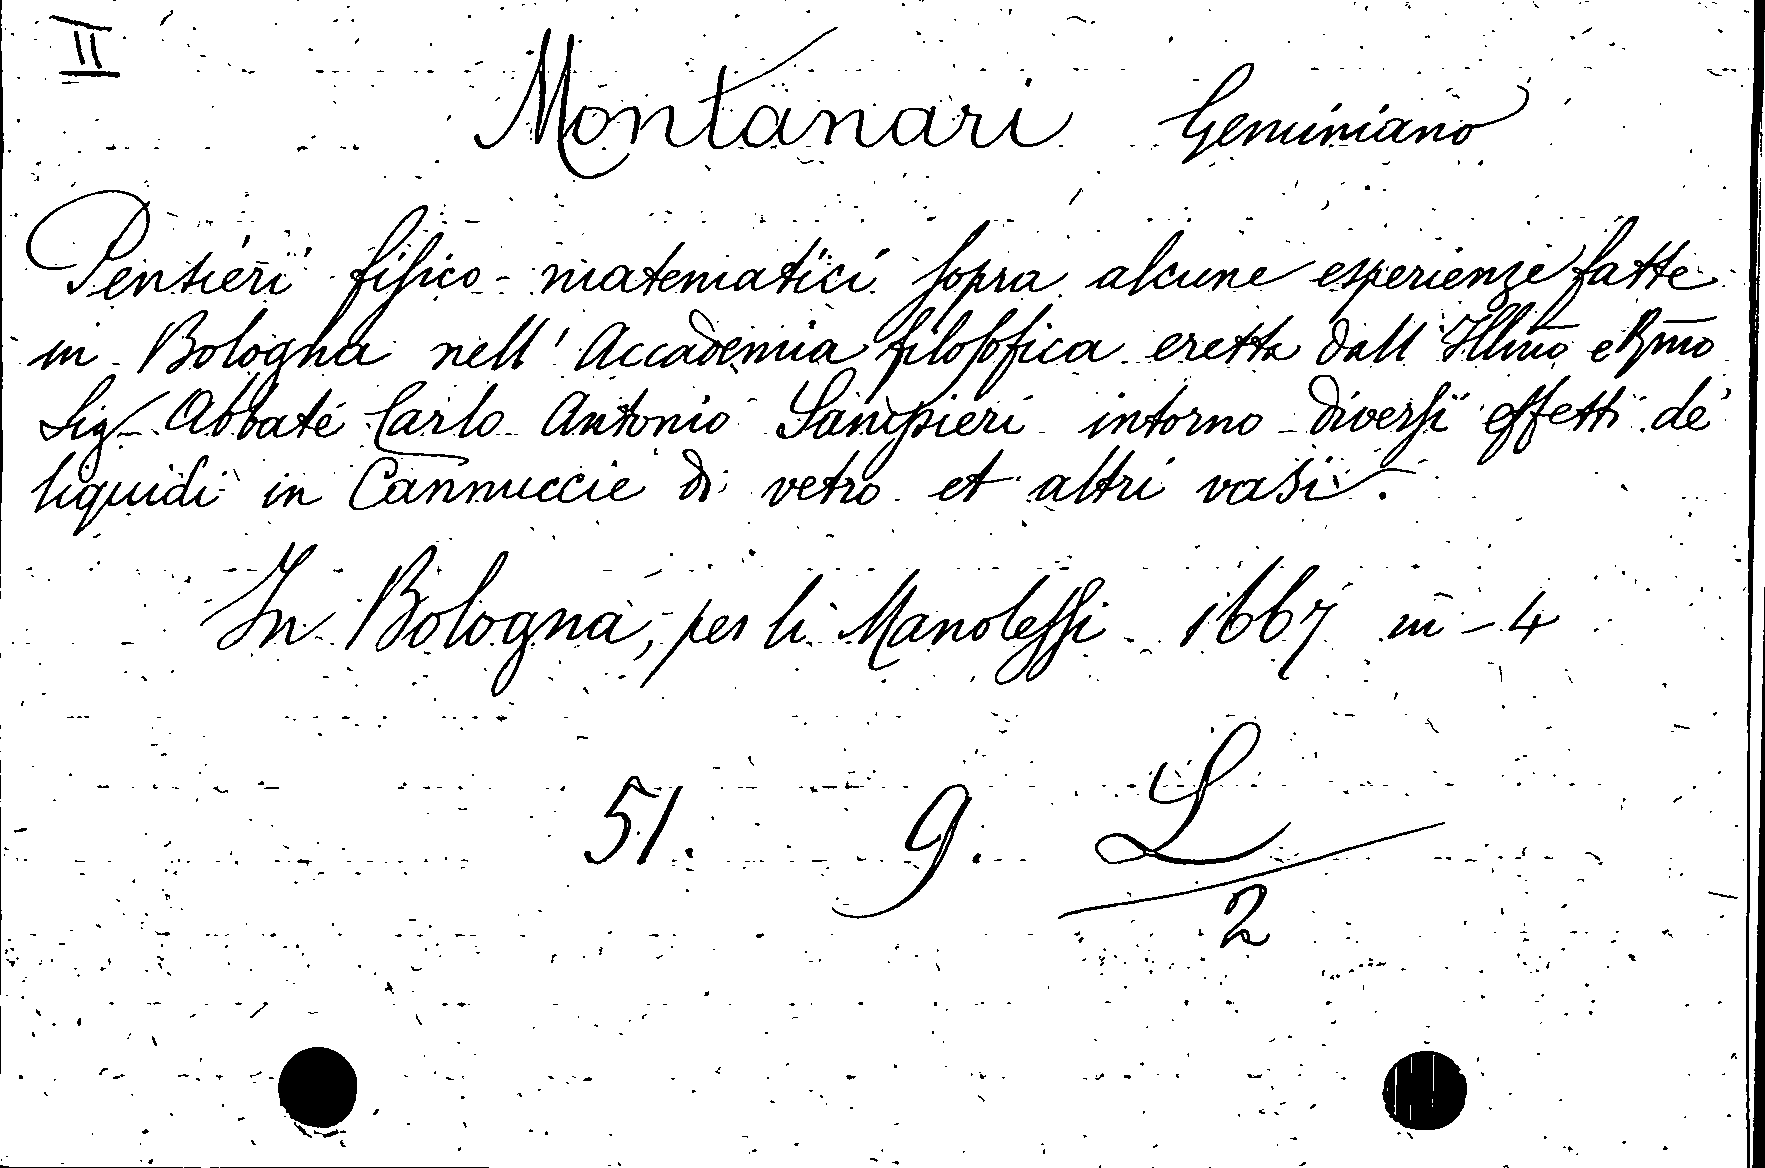 II
Montanari Geminiano
Pensieri fiſico-matematici ſopra alcune esperienze fatte
in Bologna nell' Accademia filoſofica eretta dall' Illm̄o e Rm̄o
Sig. Abbate Carlo Antonio Sampieri intorno diverſi effetti de'
liquidi in Cannuccie di vetro et altri vasi.
In Bologna, per li Manoleſſi 1667 in-4
51. 9. L
2